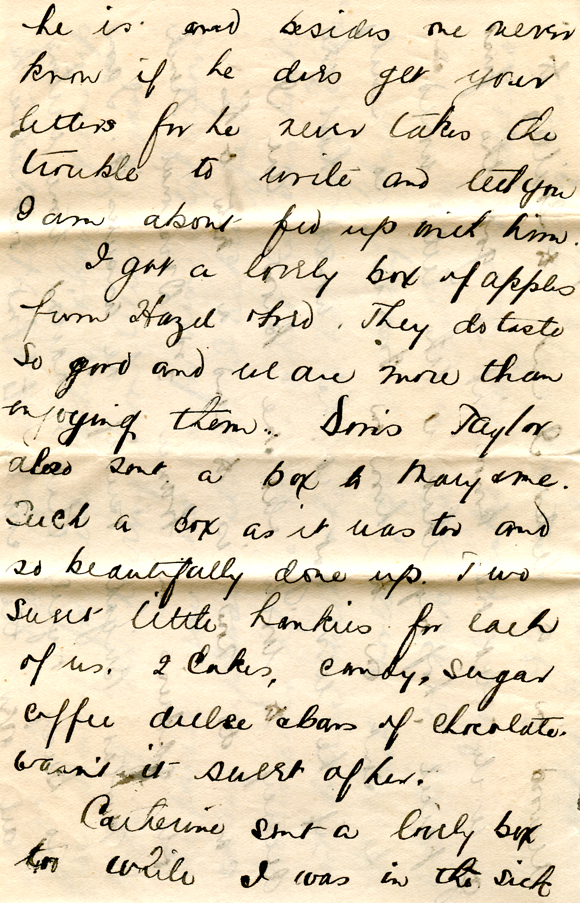 he is. and besides one never
know if he does get your
letters for he never takes the
trouble to write and tell you
I am about fed up with him.
I got a lovely box of apples
from Hazel & Fred. They do taste
so good and we are more than
enjoying them. Doris Taylor
also sent a box to Mary & me.
Such a box as it was too and
so beautifully done up. Two
sweet little hankies for each
of us. 2 Cakes, candy, sugar
coffee dulse & bars of chocolate.
wasn't it sweet of her.
Catherine sent a lovely box
too while I was in the sick